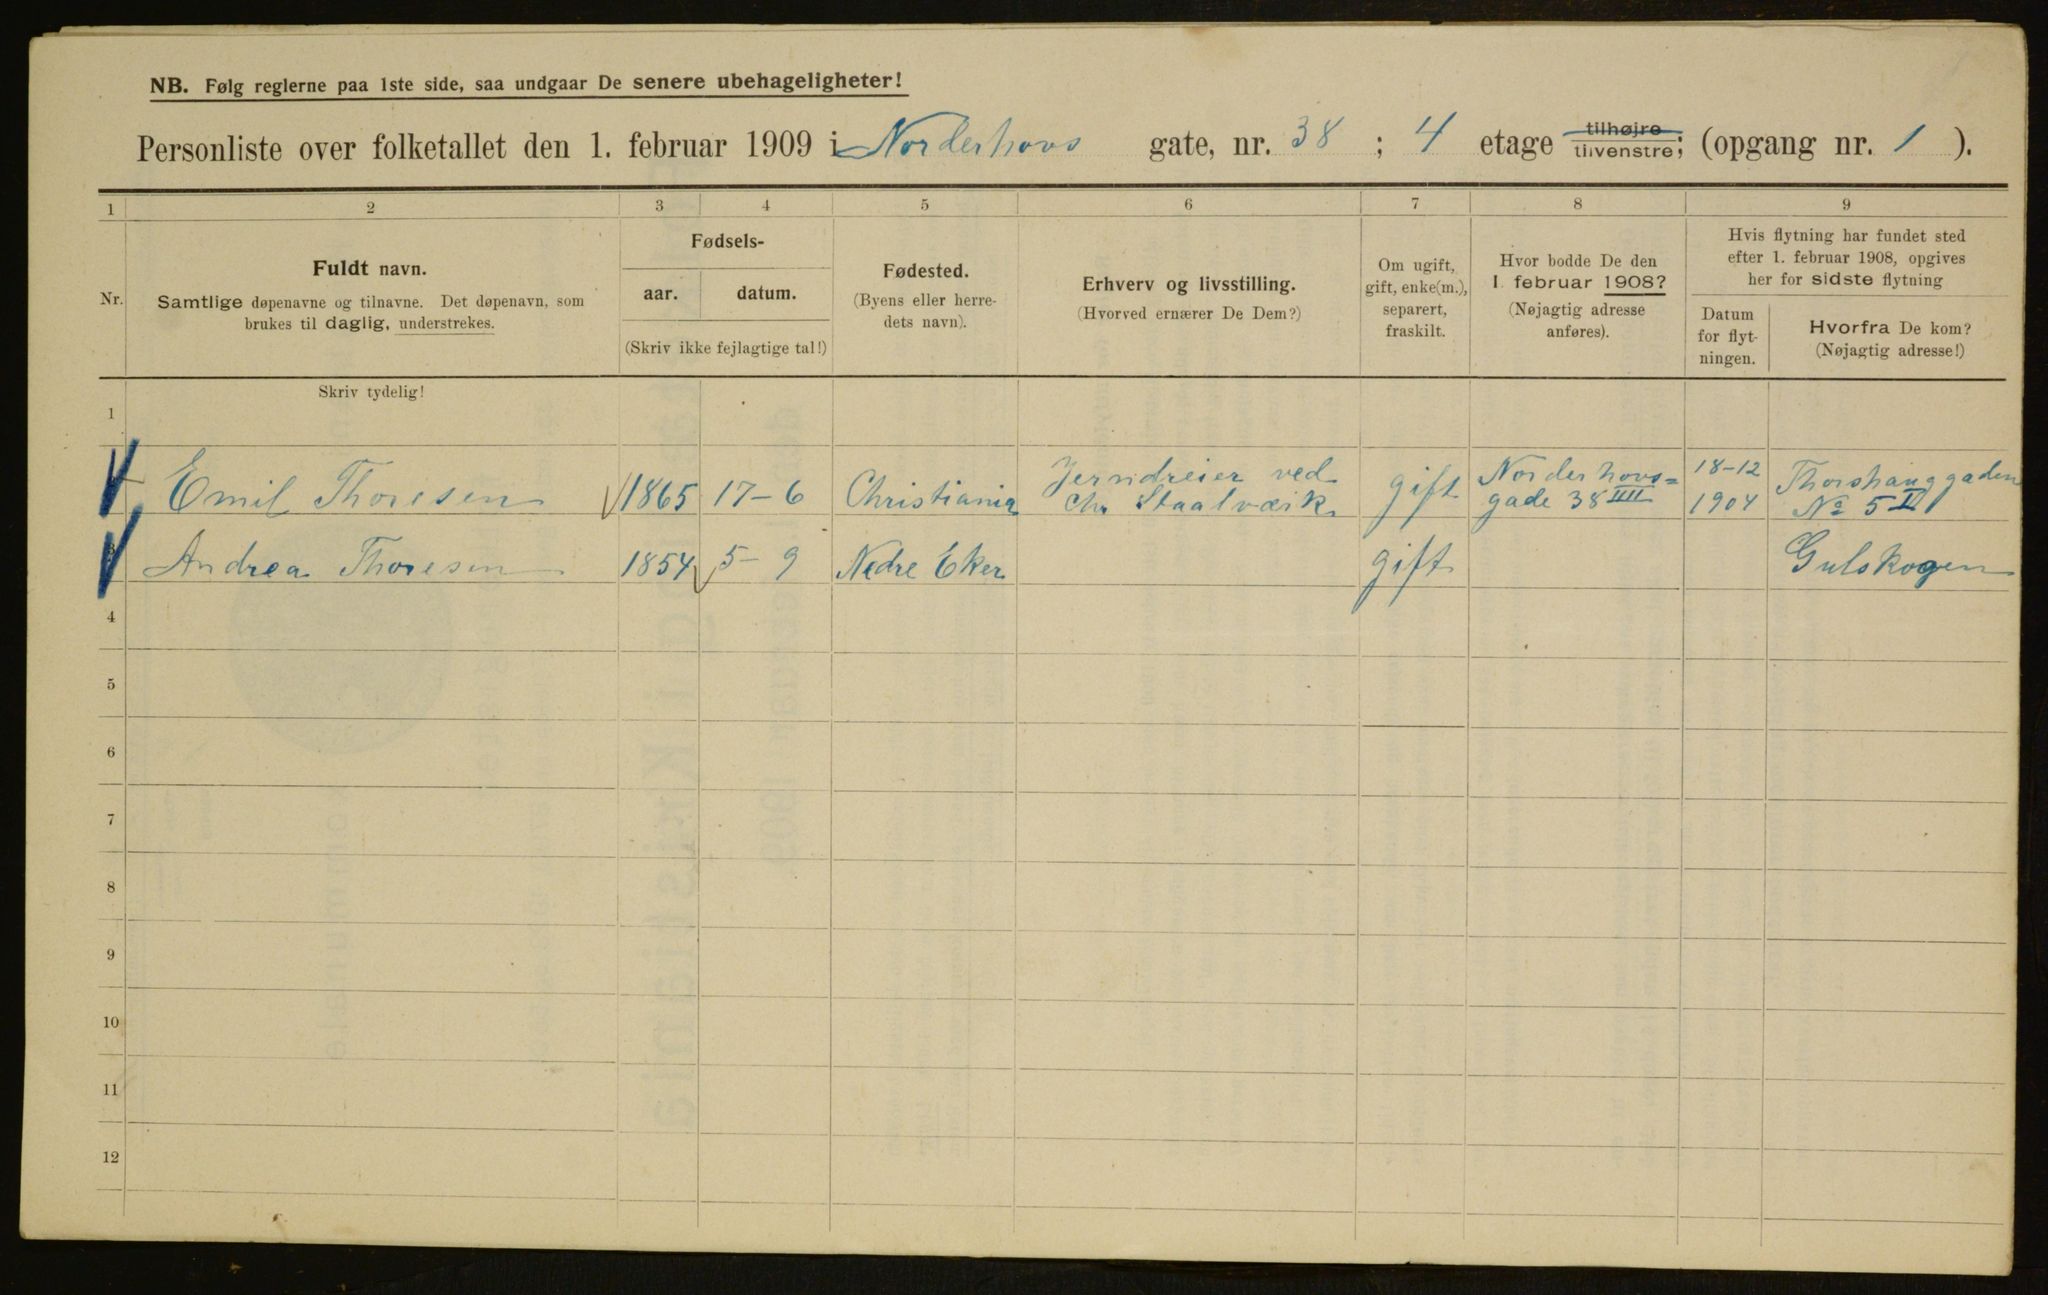 NB. Følg reglerne paa 1ste side, saa undgaar De senere ubehageligheter!
Personliste over folketallet den 1. februar 1909 i Norderhovs gate, nr. 38 ; 4 etage tilhøjre tilvenstre; (opgang nr. 1 ).
1 2 3 4 5 6 7 8 9
Nr.
Fuldt navn.
Samtlige døpenavne og tilnavne. Det døpenavn, som
brukes til daglig, understrekes.
Fødsels-
aar. datum.
(Skriv ikke fejlagtige tal!)
Fødested.
(Byens eller herre-
dets navn).
Erhverv og livsstilling.
(Hvorved ernærer De Dem?)
Om ugift,
gift, enke(m.),
separert,
fraskilt.
Hvor bodde De den
1. februar 1908?
(Nøjagtig adresse
anføres).
Hvis flytning har fundet sted
efter 1. februar 1908, opgives
her for sidste flytning
Datum
for flyt-
ningen.
Hvorfra De kom?
(Nøjagtig adresse!)
Skriv tydelig!
1
Emil Thoresen 1865 17-6 Christiania Jerndreier ved
Chr Staalværk gift Norderhovs=
gade 38 IIII 18-12
1904 Thorshauggaden
No 5 II
3 Andrea Thoresen 1854 5-9 Nedre Eker gift Gulskogen
4
5
6
7
8
9
10
11
12